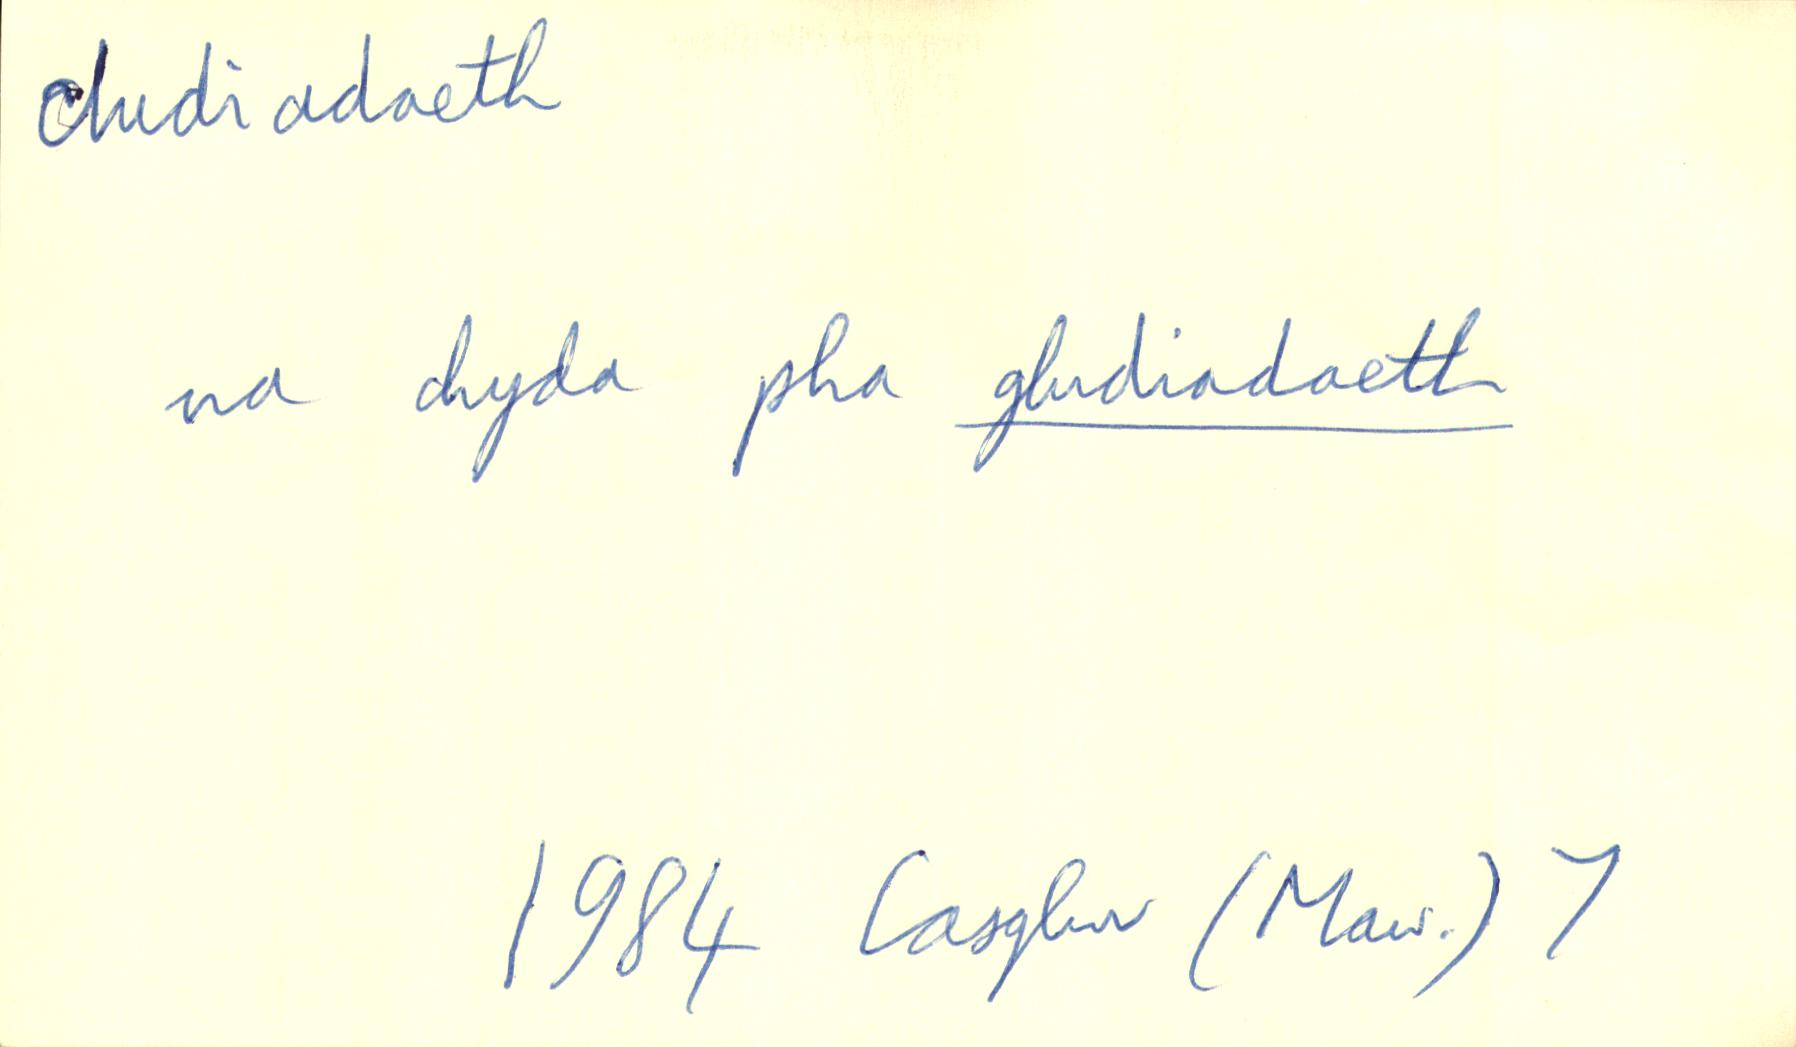 cludiadaeth
na chyda pha gludiadaeth
1984 Casglwr (Maw.) 7